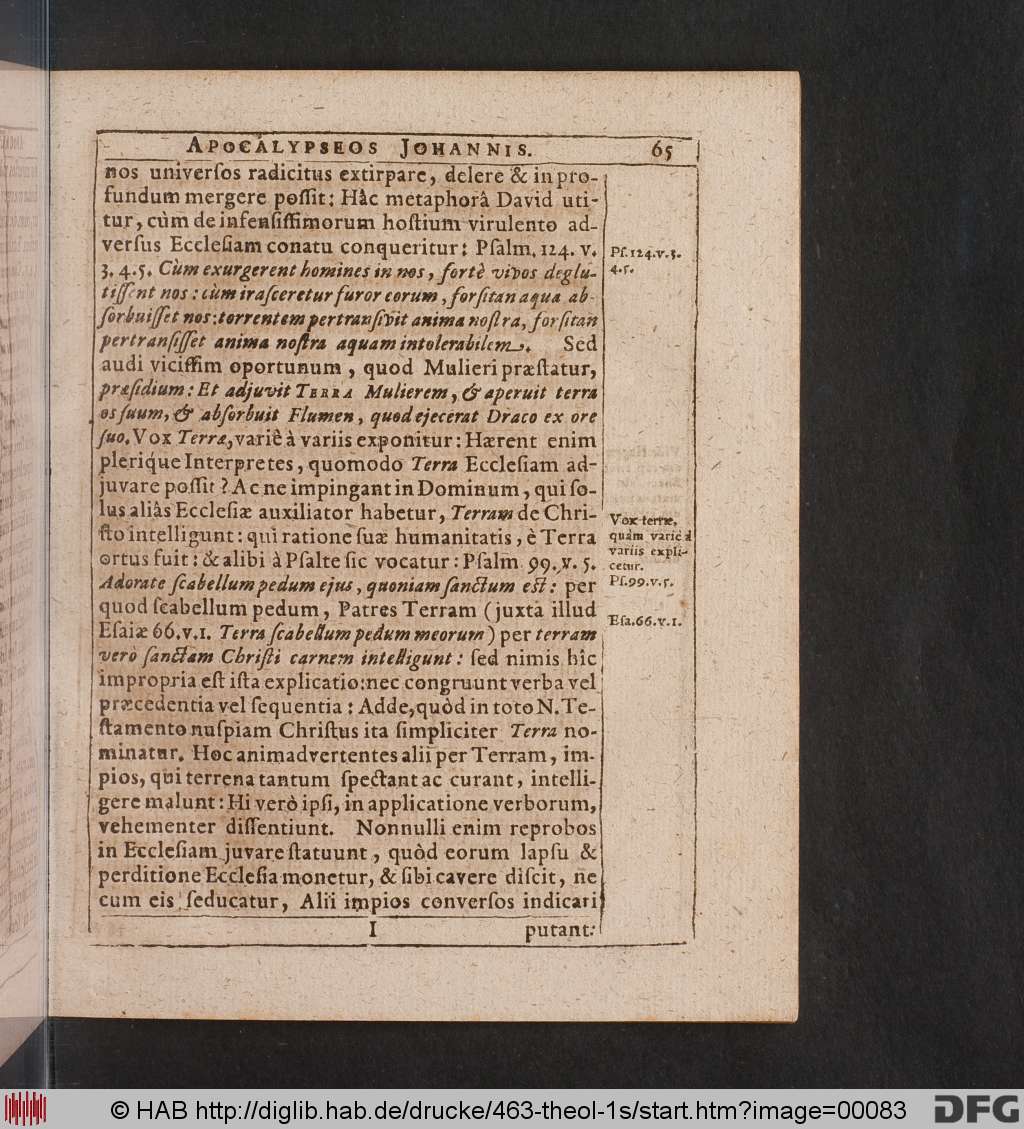 APOCALYPSEOS JOHANNIS. 65
nos univerſos radicitus extirpare, delere & in pro-
fundum mergere poſſit: Hâc metaphorâ David uti-
tur, cùm de infenſiſſimorum hoſtium virulento ad-
verſus Eccleſiam conatu conqueritur: Pſalm. 124. v.
3. 4. 5. Cùm exurgerent homines in nos, fortè vivos deglu-
tiſſent nos: cùm iraſceretur furor eorum, forſitan aqua ab-
ſorbuiſſet nos: torrentem pertranſivit anima noſtra, forſitan
pertranſiſſet anima noſtra aquam intolerabilem. Sed
audi viciſſim oportunum, quod Mulieri præſtatur,
præſidium: Et adjuvit TERRA Mulierem, & aperuit terra
os ſuum, & abſorbuit Flumen, quod ejecerat Draco ex ore
ſuo. Vox Terræ, variè à variis exponitur: Hærent enim
pleriq́ue Interpretes, quomodo Terra Eccleſiam ad-
juvare poſſit? Ac ne impingant in Dominum, qui ſo-
lus aliâs Eccleſiæ auxiliator habetur, Terram de Chri-
ſto intelligunt: qui ratione ſuæ humanitatis, è Terra
ortus fuit: & alibi à Pſalte ſic vocatur: Pſalm. 99. v. 5.
Adorate ſcabellum pedum ejus, quoniam ſanctum eſt: per
quod ſcabellum pedum, Patres Terram (juxta illud
Eſaiæ 66. v. 1. Terra ſcabellum pedum meorum) per terram
verò ſanctam Chriſti carnem intelligunt: ſed nimis hîc
impropria eſt iſta explicatio: nec congruunt verba vel
præcedentia vel ſequentia: Adde, quòd in toto N. Te-
ſtamento nuſpiam Chriſtus ita ſimpliciter Terra no-
minatur. Hoc animadvertentes alii per Terram, im-
pios, qui terrena tantum ſpectant ac curant, intelli-
gere malunt: Hi verò ipſi, in applicatione verborum,
vehementer diſſentiunt. Nonnulli enim reprobos
in Eccleſiam juvare ſtatuunt, quòd eorum lapſu &
perditione Eccleſia monetur, & ſibi cavere diſcit, ne
cum eis ſeducatur, Alii impios converſos indicari
I putant:
Pſ. 124. v. 3.
4. 5.
Vox terræ,
quàm variè à
variis expli-
cetur.
Pſ. 99. v. 5.
Eſa. 66. v. 1.
© HAB http://diglib.hab.de/drucke/463-theol-1s/start.htm?image=00083
DFG